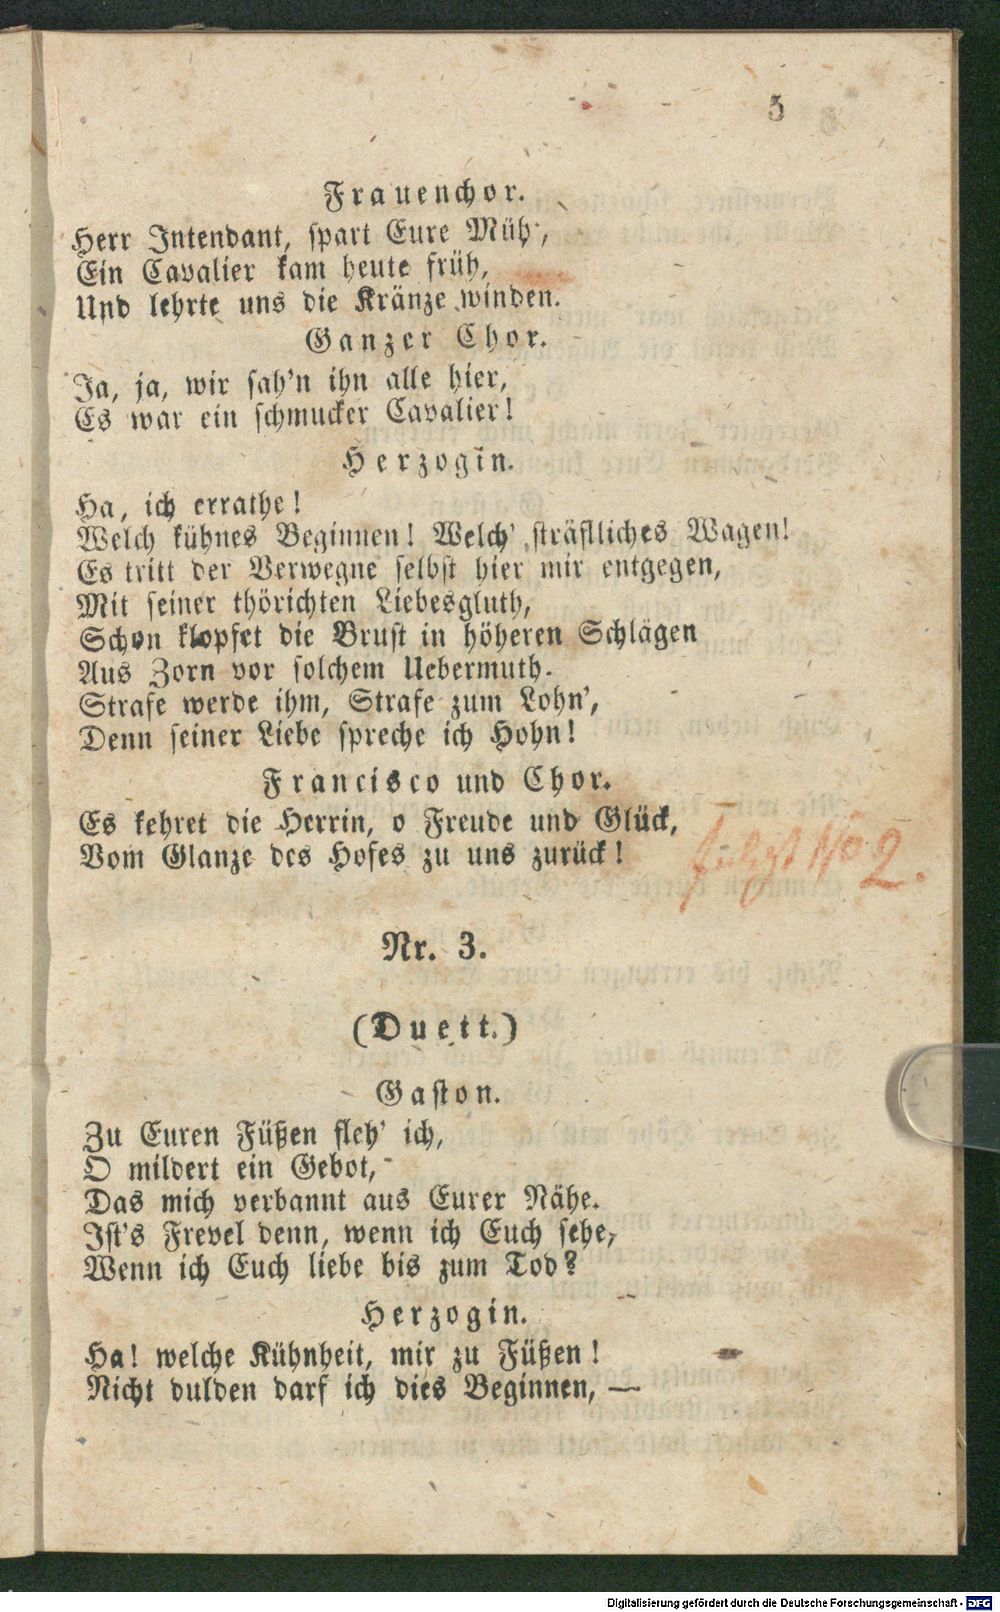 5
Frauenchor.
Herr Intendant, spart Eure Müh',
Ein Cavalier kam heute früh,
Und lehrte uns die Kränze winden.
Ganzer Chor.
Ja, ja, wir sah'n ihn alle hier,
Es war ein schmucker Cavalier!
Herzogin.
Ha, ich errathe!
Welch kühnes Beginnen! Welch' sträflliches Wagen!
Es tritt der Verwegne selbst hier mir entgegen,
Mit seiner thörichten Liebesgluth,
Schon klopfet die Brust in höheren Schlägen
Aus Zorn vor solchem Uebermuth.
Strafe werde ihm, Strafe zum Lohn',
Denn seiner Liebe spreche ich Hohn!
Francisco und Chor.
Es kehret die Herrin, o Freude und Glück,
Vom Glanze des Hofes zu uns zurück!
folgt No 2.
Nr. 3.
(Duett.)
Gaston.
Zu Euren Füßen fleh' ich,
O mildert ein Gebot,
Das mich verbannt aus Eurer Nähe.
Ist's Frevel denn, wenn ich Euch sehe,
Wenn ich Euch liebe bis zum Tod?
Herzogin.
Ha! welche Kühnheit, mir zu Füßen!
Nicht dulden darf ich dies Beginnen, —
Digitalisierung gefördert durch die Deutsche Forschungsgemeinschaft - DFG